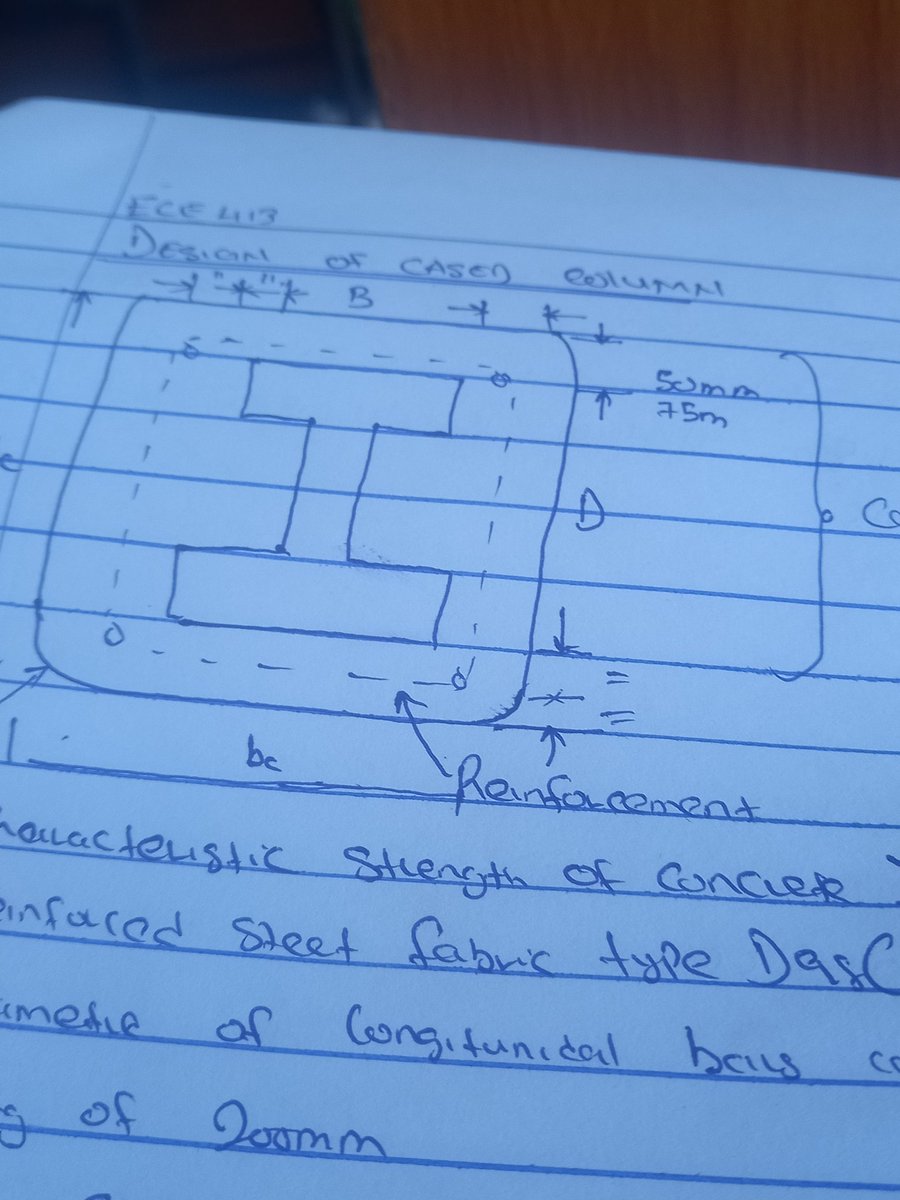 ECE 413
DESIGN OF CASED COLUMN
B
50mm
75m
D
bc
Reinforcement
Strength of Concrete
Steel fabric type
of Longitunidal bars
of 200mm